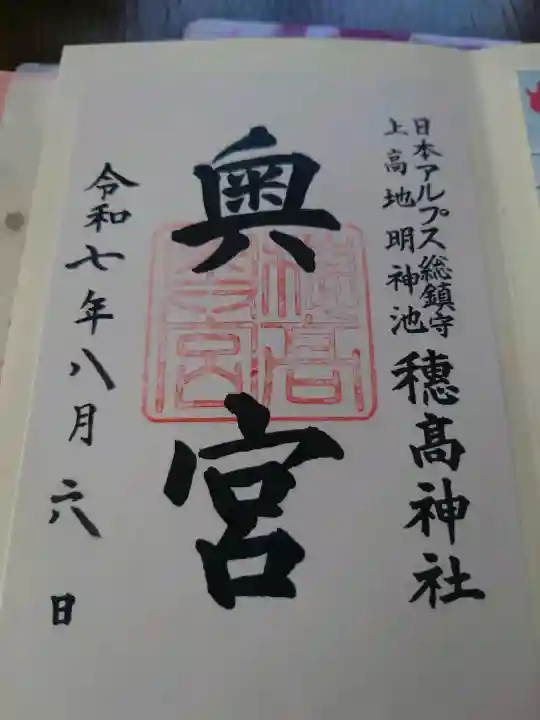 日本アルプス総鎮守
上高地明神池
穂髙神社
奥宮
穂高
奥宮
令和七年八月六日